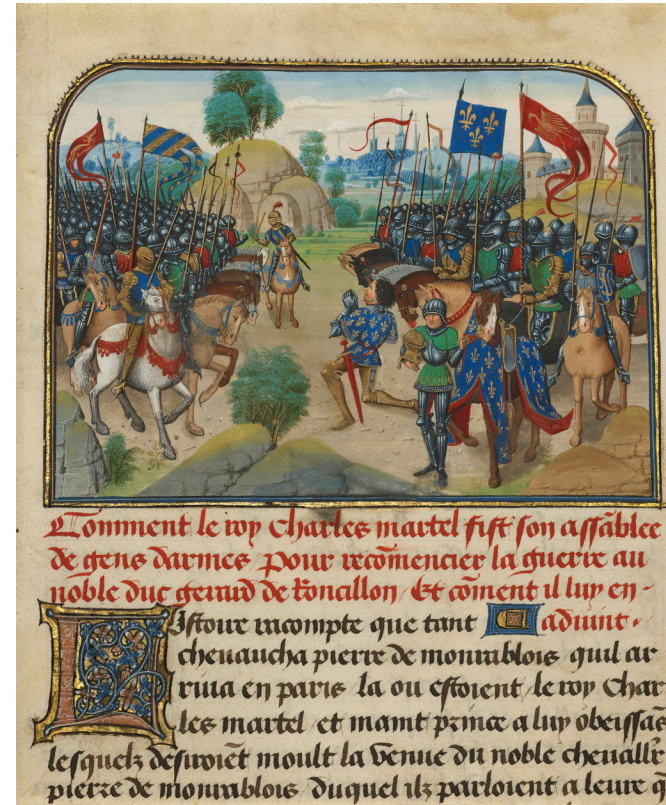 Comment le roy Charles martel fist son assãblee
de gens darmes pour recõmencier la guerre au
noble duc gerard de Roncillon / Et cõment il luy en-
adujnt.
Listoire racompte que tant
cheuaucha pierre de monrablois quil ar
riua en paris la ou estoient le roy Char
les martel et maint prince a luy obeissãs
lesquelz desiroiẽt moult la venue du noble cheuallr̃
pierre de monrablois duquel ilz parloient a leure q̃